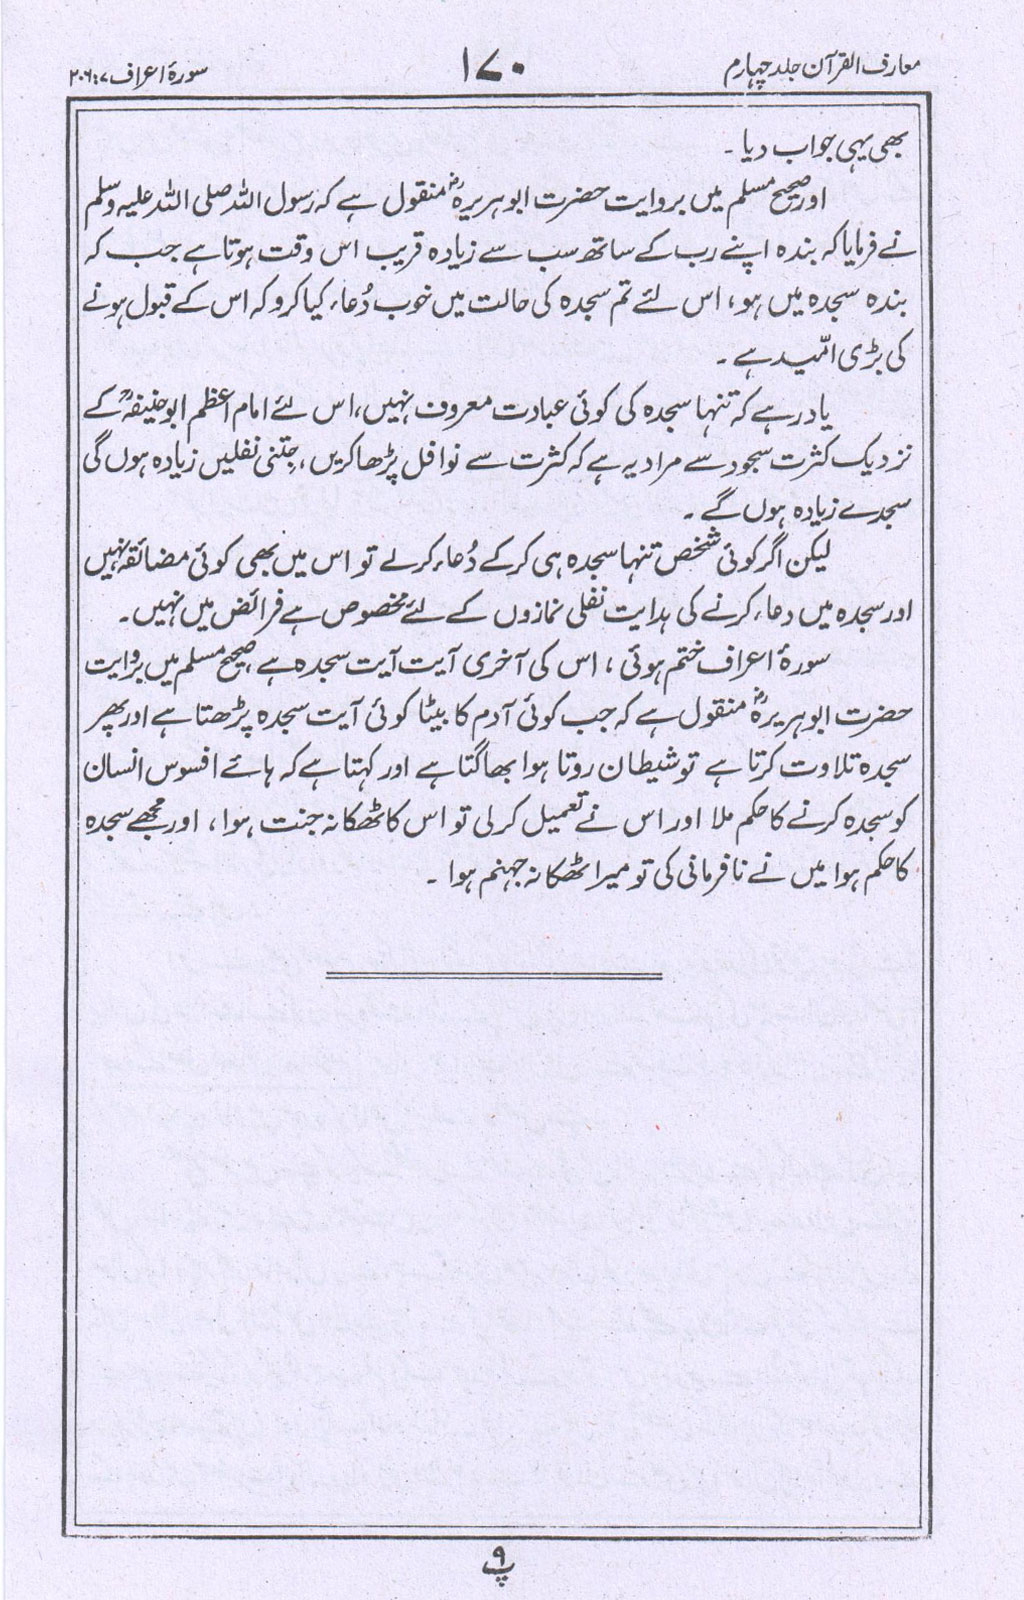 معارف القرآن جلد چہارم
۱۷۰
سورۂ اعراف ۷: ۲۰۶
بھی یہی جواب دیا ۔
اور صحیح مسلم میں بروایت حضرت ابوہریرہؓ منقول ہے کہ رسول اللہ صلی اللہ علیہ وسلم
نے فرمایا کہ بندہ اپنے رب کے ساتھ سب سے زیادہ قریب اس وقت ہوتا ہے جب کہ
بندہ سجدہ میں ہو، اس لئے تم سجدہ کی حالت میں خوب دُعاء کیا کرو کہ اس کے قبول ہونے
کی بڑی امّید ہے ۔
یاد رہے کہ تنہا سجدہ کی کوئی عبادت معروف نہیں، اس لئے امام اعظم ابوحنیفہؒ کے
نزدیک کثرت سجود سے مراد یہ ہے کہ کثرت سے نوافل پڑھا کریں، جتنی نفلیں زیادہ ہوں گی
سجدے زیادہ ہوں گے ۔
لیکن اگر کوئی شخص تنہا سجدہ ہی کر کے دُعاء کر لے تو اس میں بھی کوئی مضائقہ نہیں
اور سجدہ میں دعاء کرنے کی ہدایت نفلی نمازوں کے لئے مخصوص ہے فرائض میں نہیں۔
سورۂ اعراف ختم ہوئی، اس کی آخری آیت آیت سجدہ ہے، صحیح مسلم میں بروایت
حضرت ابوہریرہؓ منقول ہے کہ جب کوئی آدم کا بیٹا کوئی آیت سجدہ پڑھتا ہے اور پھر
سجدہ تلاوت کرتا ہے تو شیطان روتا ہوا بھاگتا ہے اور کہتا ہے کہ ہائے افسوس انسان
کو سجدہ کرنے کا حکم ملا اور اس نے تعمیل کر لی تو اس کا ٹھکانہ جنت ہوا، اور مجھے سجدہ
کا حکم ہوا میں نے نافرمانی کی تو میرا ٹھکانہ جہنم ہوا ۔
پ ۹